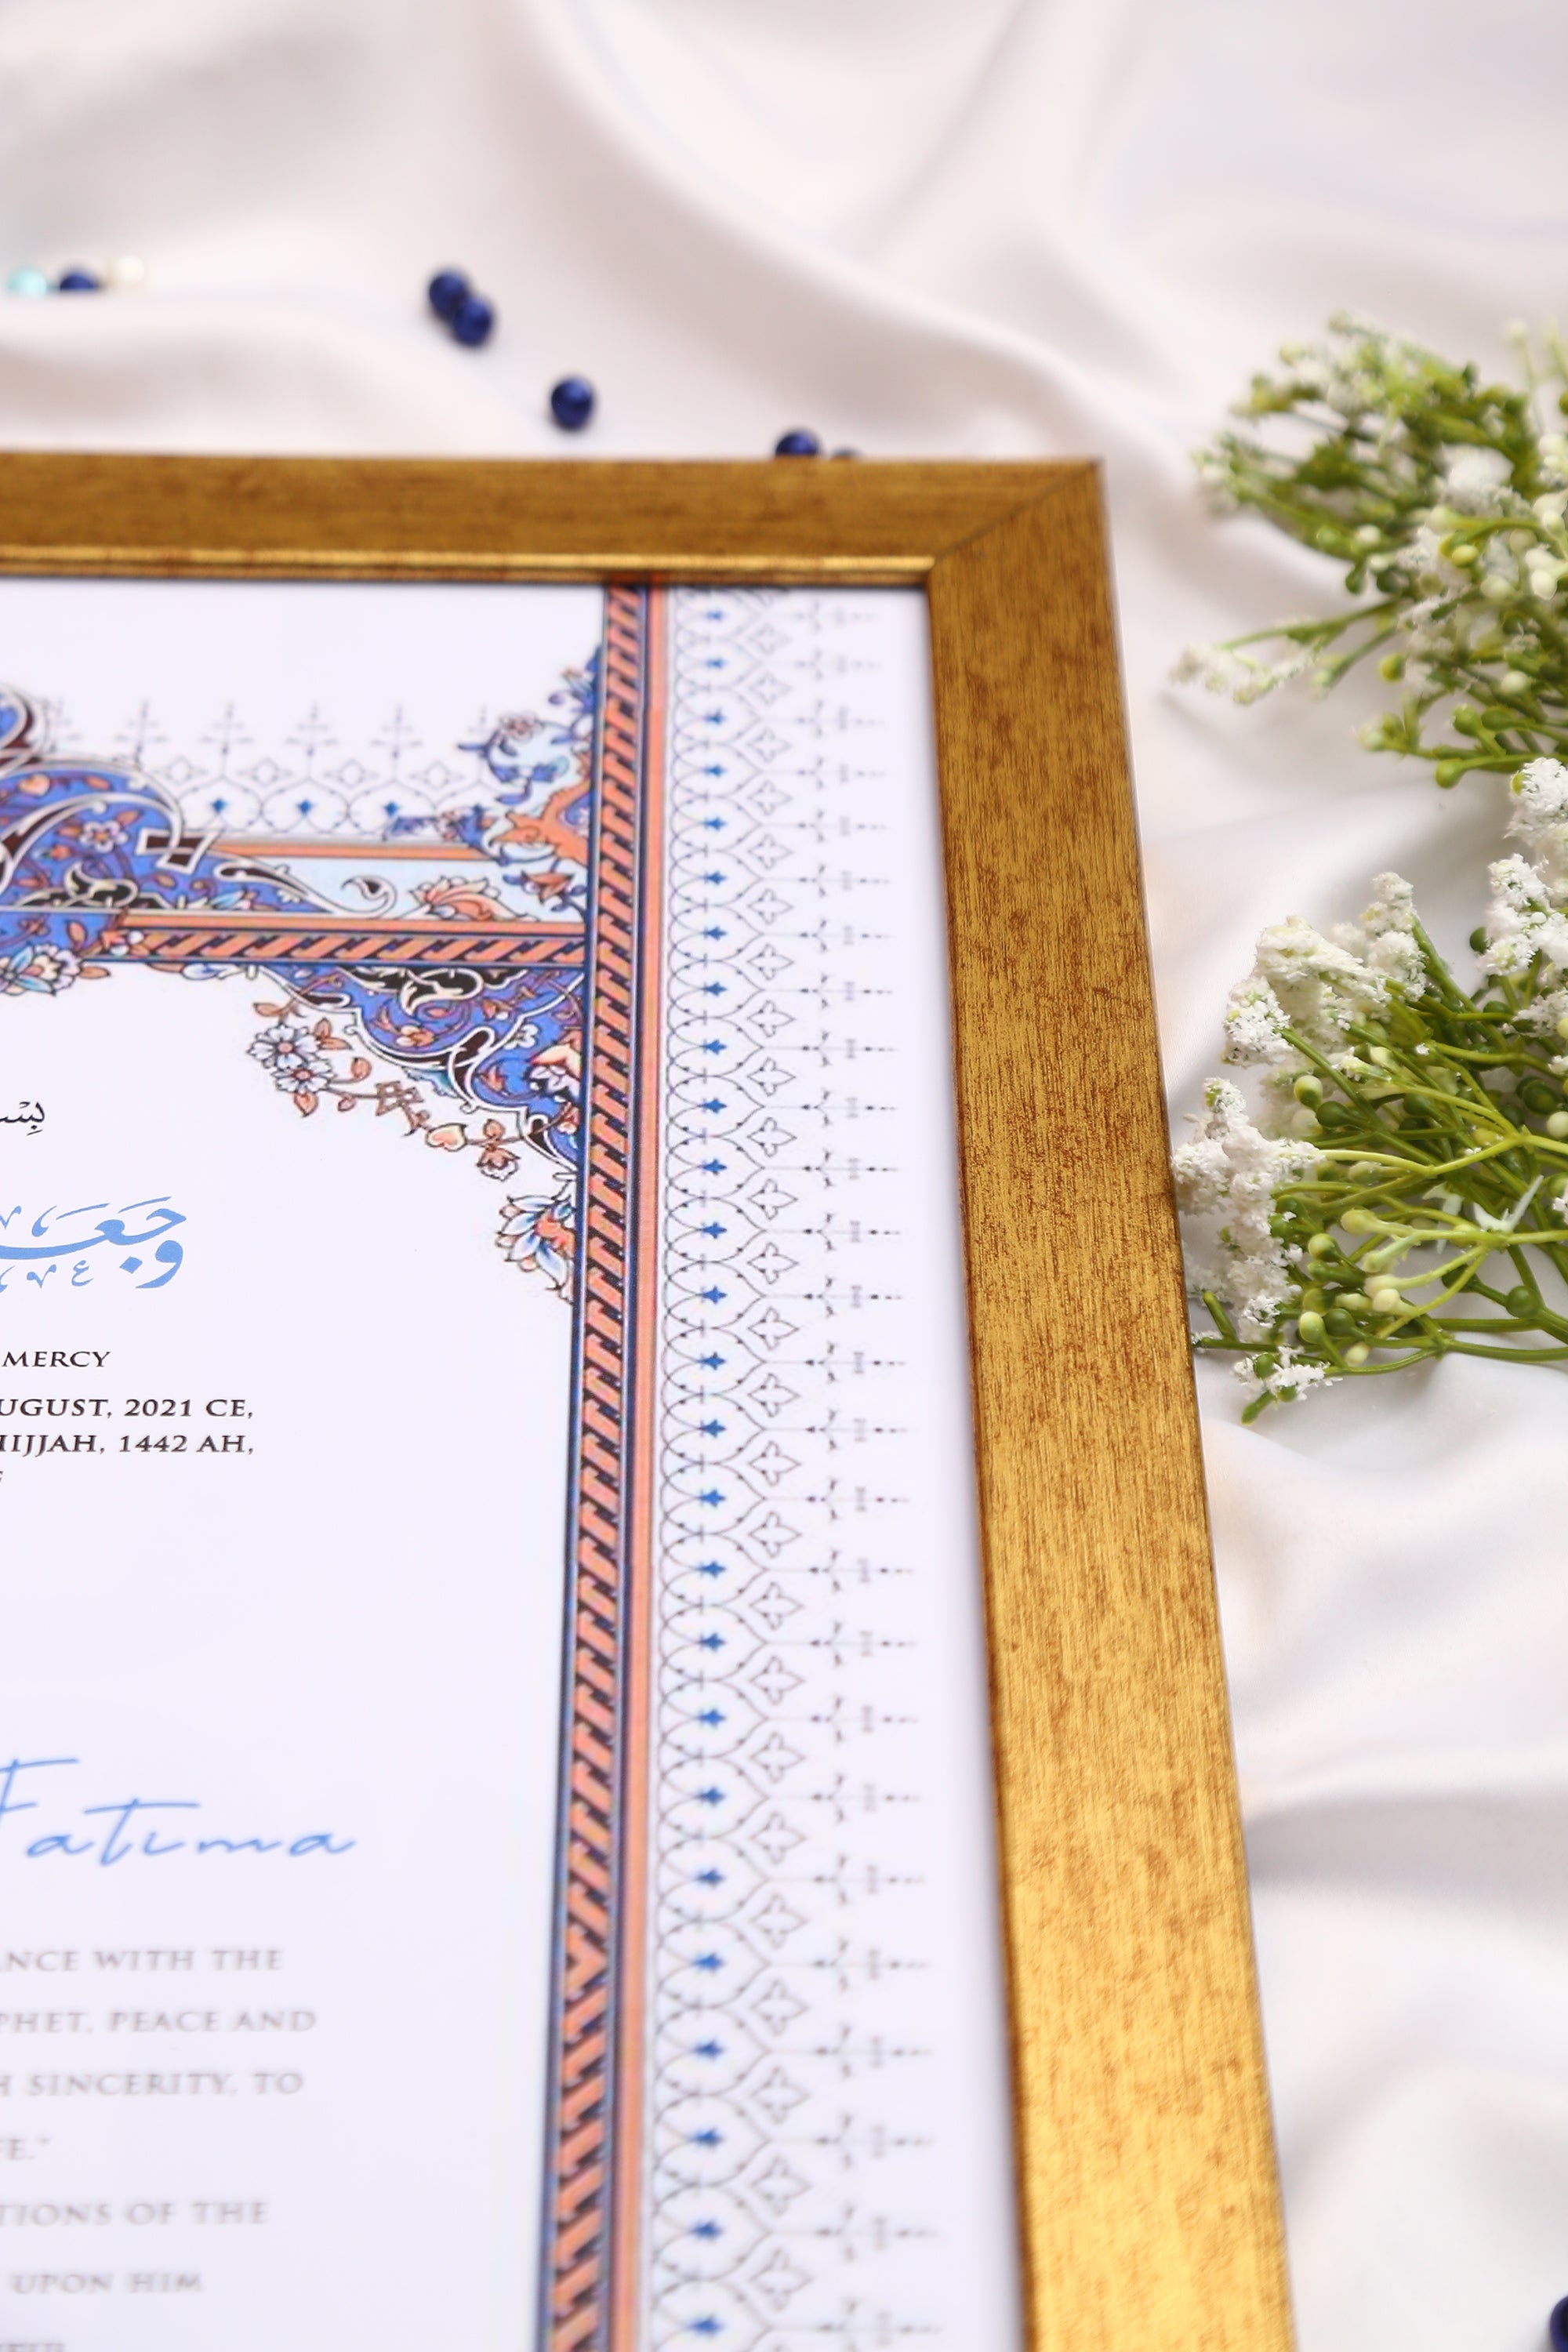 بِسْ
وَجَعَ
MERCY
UGUST, 2021 CE,
HIJJAH, 1442 AH,
Fatima
NCE WITH THE
PHET, PEACE AND
H SINCERITY, TO
FE."
TIONS OF THE
UPON HIM